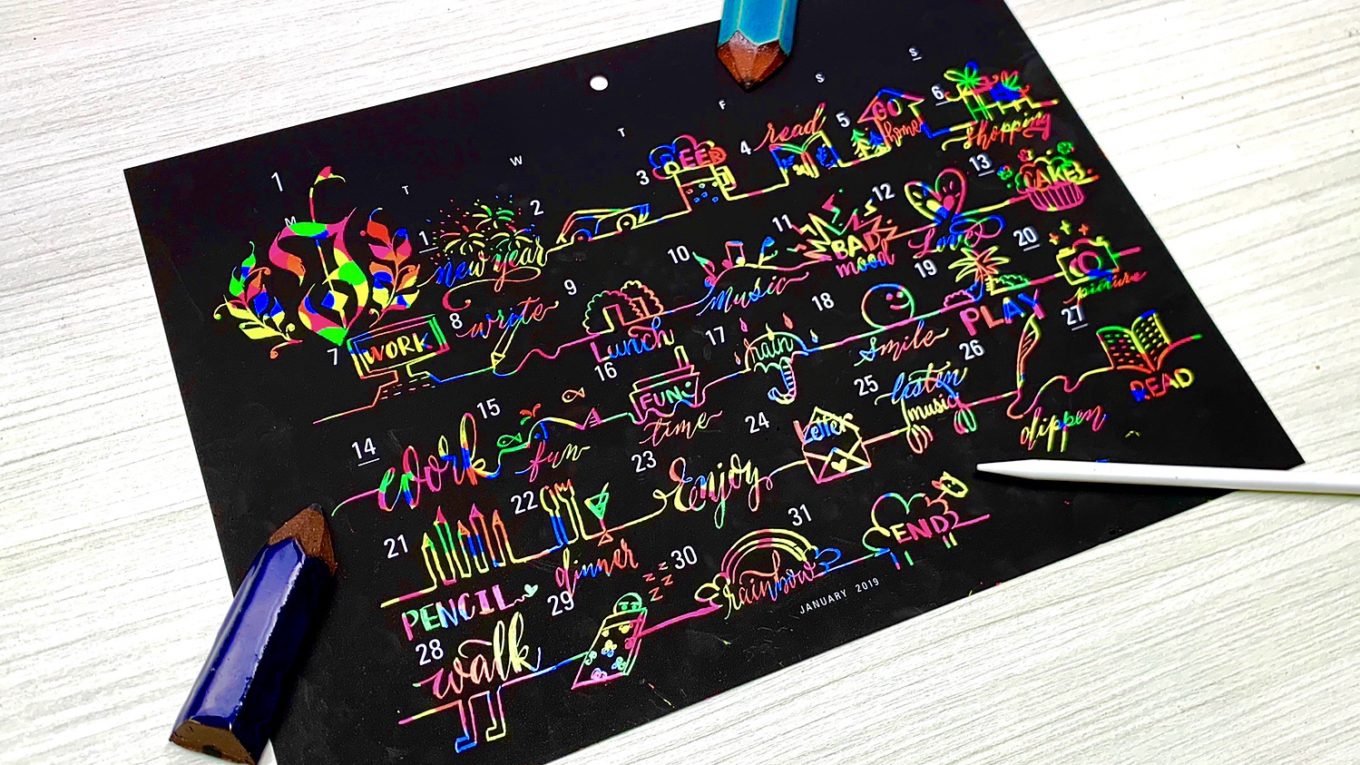 1
M T W T F S S
1 new year
2
3 BEER
4 read
5 GO home
6 shopping
7 WORK
8 write
9 Lunch
10 Music
11 BAD mood
12 Love
13 CAKE!
14 work
15 fun
16 FUN time
17 rain
18 Smile
19 PLAY
20 picture
21 PENCIL
22 dinner
23 Enjoy
24 letter
25 listen music
26 dippen
27 READ
28 walk
29 z z z
30 rainbow
31 END
JANUARY 2019